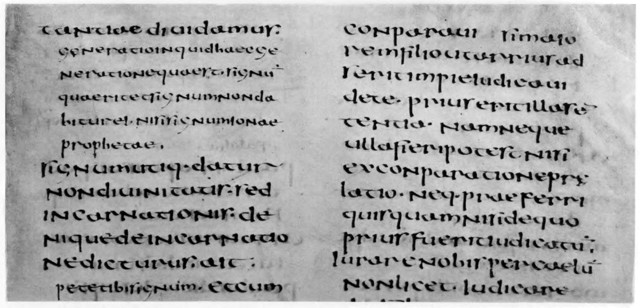 tantiae diuidamur.
generatio inquid haec ge
neratio nequaer· signū
quaerit et signum non da
bitur ei· nisi signum ionae
prophetae.
signum utiq· datur
non diuinitatis· sed
incarnationis· de
nique de incarnatio
ne dicturus· ait:
pete tibi signum· et cum
conparaui si maio
rem filio ut arrius ad
serit impie iudicaui
de te· prius
tentia· nam neque
ulla fieri potest nisi
ex conparatione prae
latio· neq· praeferri
quisquam nisi de quo
prius fuerit iudicatu;
Iurare nobis per caelū
non licet· iudicare